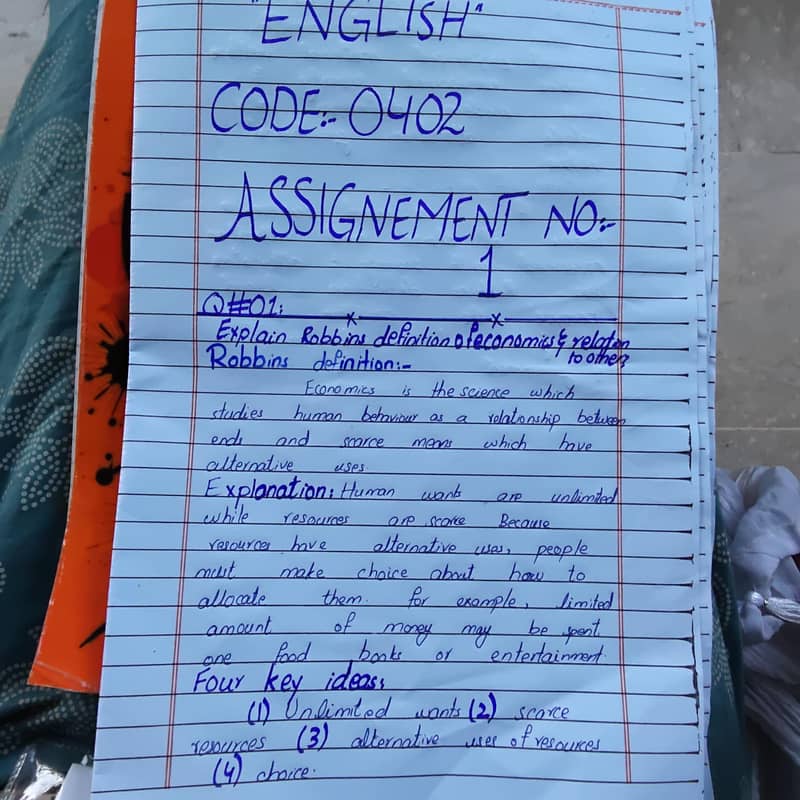 "ENGLISH"
CODE:- 0402
ASSIGNEMENT NO:-
1
Q#01:
Explain Robbins definition of economics & relation
to others
Robbins definition:-
Economics is the science which
studies human behaviour as a relationship between
ends and scarce means which have
alternative uses
Explanation: Human wants are unlimited
while resources are scarce Because
resources have alternative uses, people
must make choice about how to
allocate them. for example, limited
amount of money may be spent
one food books or entertainment.
Four key ideas:
(1) Unlimited wants (2) scarce
resources (3) alternative uses of resources
(4) choice.